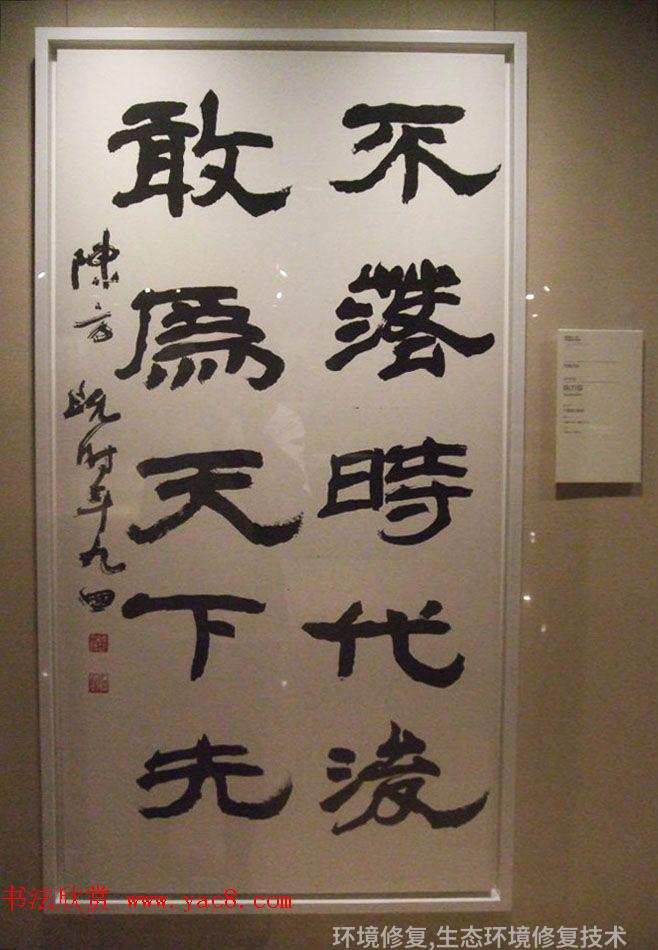 不落時代後
敢爲天下先
陳方既时年九四
书法欣赏 www.yac8.com
环境修复,生态环境修复技术